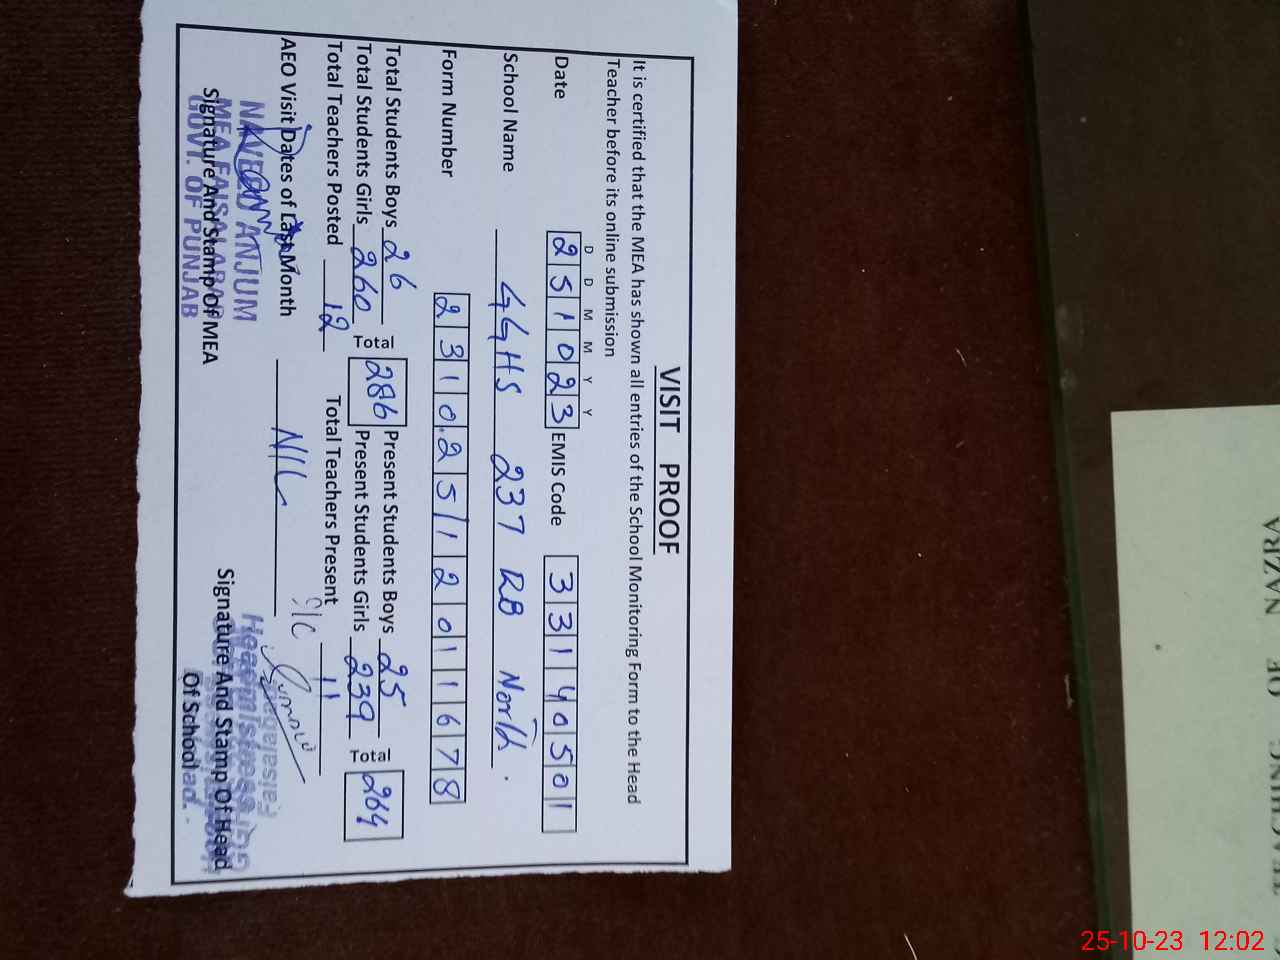 VISIT PROOF
It is certified that the MEA has shown all entries of the School Monitoring Form to the Head
Teacher before its online submission
D D M M Y Y
Date 251023 EMIS Code 33140501
School Name GGHS 237 RB North.
Form Number 23102512011678
Total Students Boys 26 Total 286 Present Students Boys 25 Total 264
Total Students Girls 260 Present Students Girls 239
Total Teachers Posted 12 Total Teachers Present 11
AEO Visit Dates of Last Month NIL
NAVEED ANJUM
MEA FAISALABAD
GOVT. OF PUNJAB
Signature And Stamp Of MEA
I/C
Headmistress
Signature And Stamp Of Head
Of School
25-10-23 12:02
NAZRA
OF